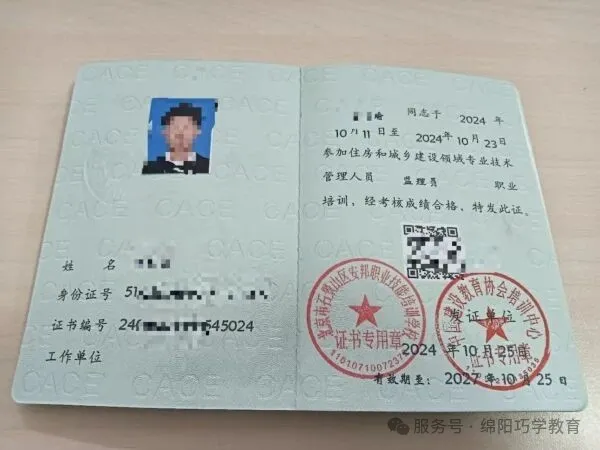 姓 名
身份证号 51
证书编号 24 545024
工作单位
同志于 2024 年
10 月 11 日 至 2024 年 10 月 23 日
参加住房和城乡建设领域专业技术
管理人员 监理员 职业
培训，经考核成绩合格，特发此证。
北京市石景山区安邦职业技能培训学校
证书专用章
中国建设教育协会培训中心
证书专用章
发证单位
2024 年 10 月 25 日
有效期至： 2027 年 10 月 25 日
CACE
服务号 · 绵阳巧学教育